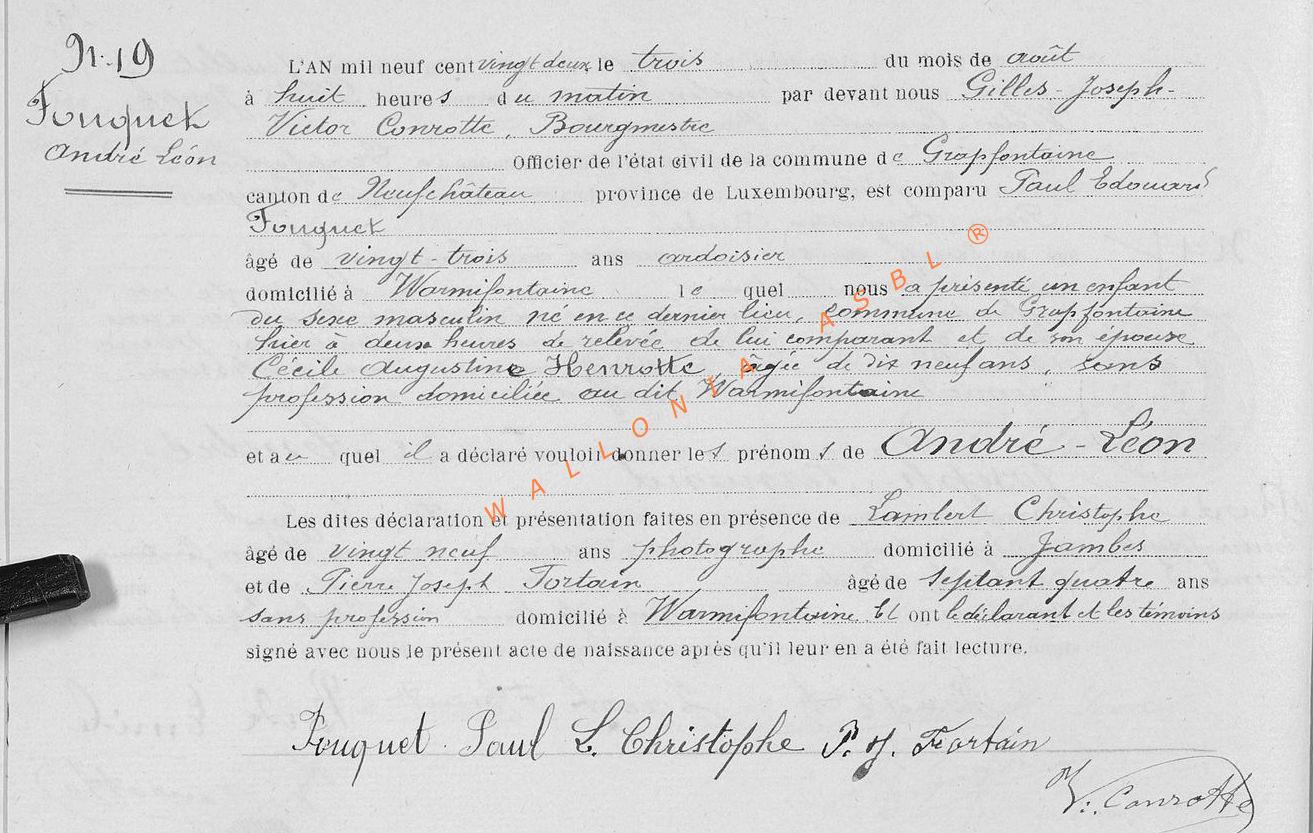 N. 19
Fouquet
André Léon
L'AN mil neuf cent vingt deux le trois du mois de août
à huit heures du matin par devant nous Gilles-Joseph-
Victor Conrotte, Bourgmestre
Officier de l'état civil de la commune de Grapfontaine
canton de Neufchâteau province de Luxembourg, est comparu Paul Edouard
Fouquet
âgé de vingt-trois ans ardoisier
domicilié à Warmifontaine lequel nous a présenté un enfant
du sexe masculin né en ce dernier lieu, commune de Grapfontaine
hier à deux heures de relevée de lui comparant et de son épouse
Cécile Augustine Henrotte, âgée de dix neuf ans, sans
profession domiciliée au dit Warmifontaine
et au quel il a déclaré vouloir donner les prénoms de André-Léon
Les dites déclaration et présentation faites en présence de Lambert Christophe
âgé de vingt neuf ans photographe domicilié à Jambes
et de Pierre Joseph Fortain âgé de septant quatre ans
sans profession domicilié à Warmifontaine Et ont le déclarant et les témoins
signé avec nous le présent acte de naissance après qu'il leur en a été fait lecture.
Fouquet Paul L. Christophe P. J. Fortain
V. Conrotte
WALLONIA ASBL ®